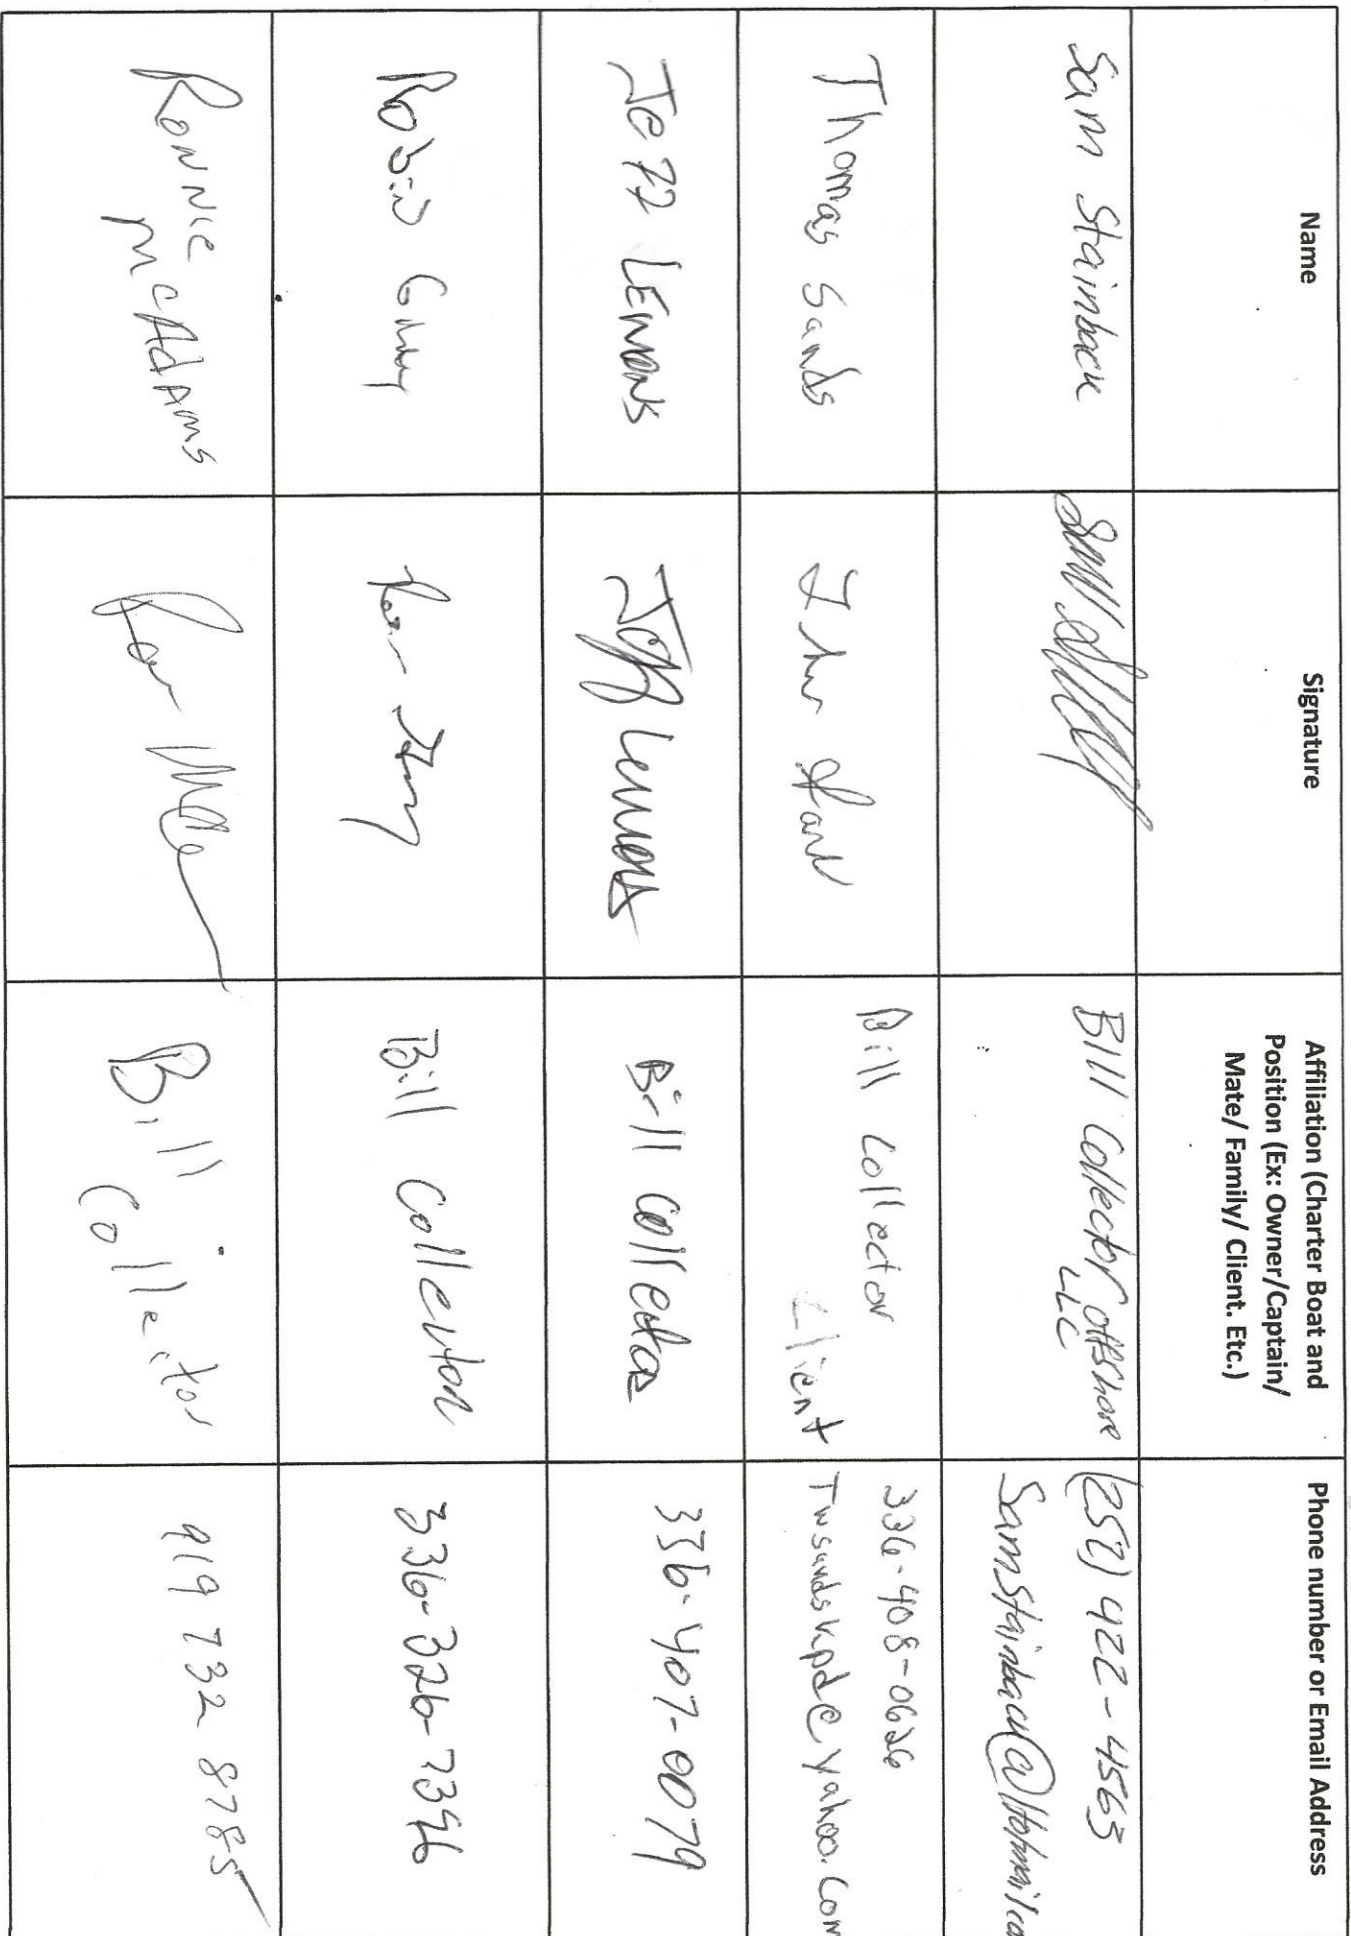 Name
Signature
Affiliation (Charter Boat and
Position (Ex: Owner/Captain/
Mate/ Family/ Client. Etc.)
Phone number or Email Address
Sam Stainback
Bill Collector Offshore
LLC
(252) 422-4563
Thomas Sands
Bill Collector
Client
336-408-0626
Twsandskpd@yahoo.com
Jeff LEMONS
Jeff Lemons
Bill Collector
336-407-0079
Robin
Bill Collector
336-326-7396
RONNIE
McADAMS
Bill
Collector
919 732 8785